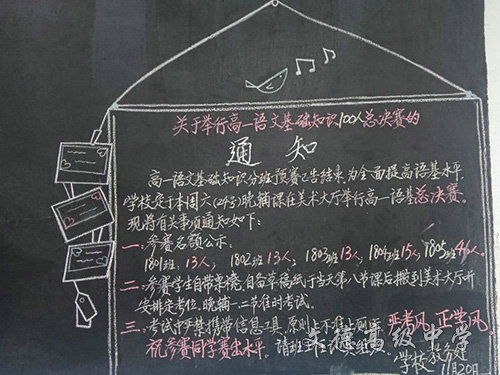 关于举行高一语文基础知识100人总决赛的
通知
高一语文基础知识分班预赛已告结束,为全面提高语基水平,
学校定于本周六(24号)晚辅课在美术大厅举行高一语基总决赛。
现将有关事项通知如下:
一:参赛名额公示:
1801班:13人; 1802班13人; 1803班13人; 1804班15人; 1805班46人。
二:参赛学生自带桌凳,自备草稿纸于当天第八节课后搬到美术大厅并
安排考位,晚辅一二节准时考试。
三:考试中严禁携带信息工具,原则上不准上厕所 严考风 正学风
祝参赛同学赛出水平。请班主任
学校教务处
11月20日
高级中学